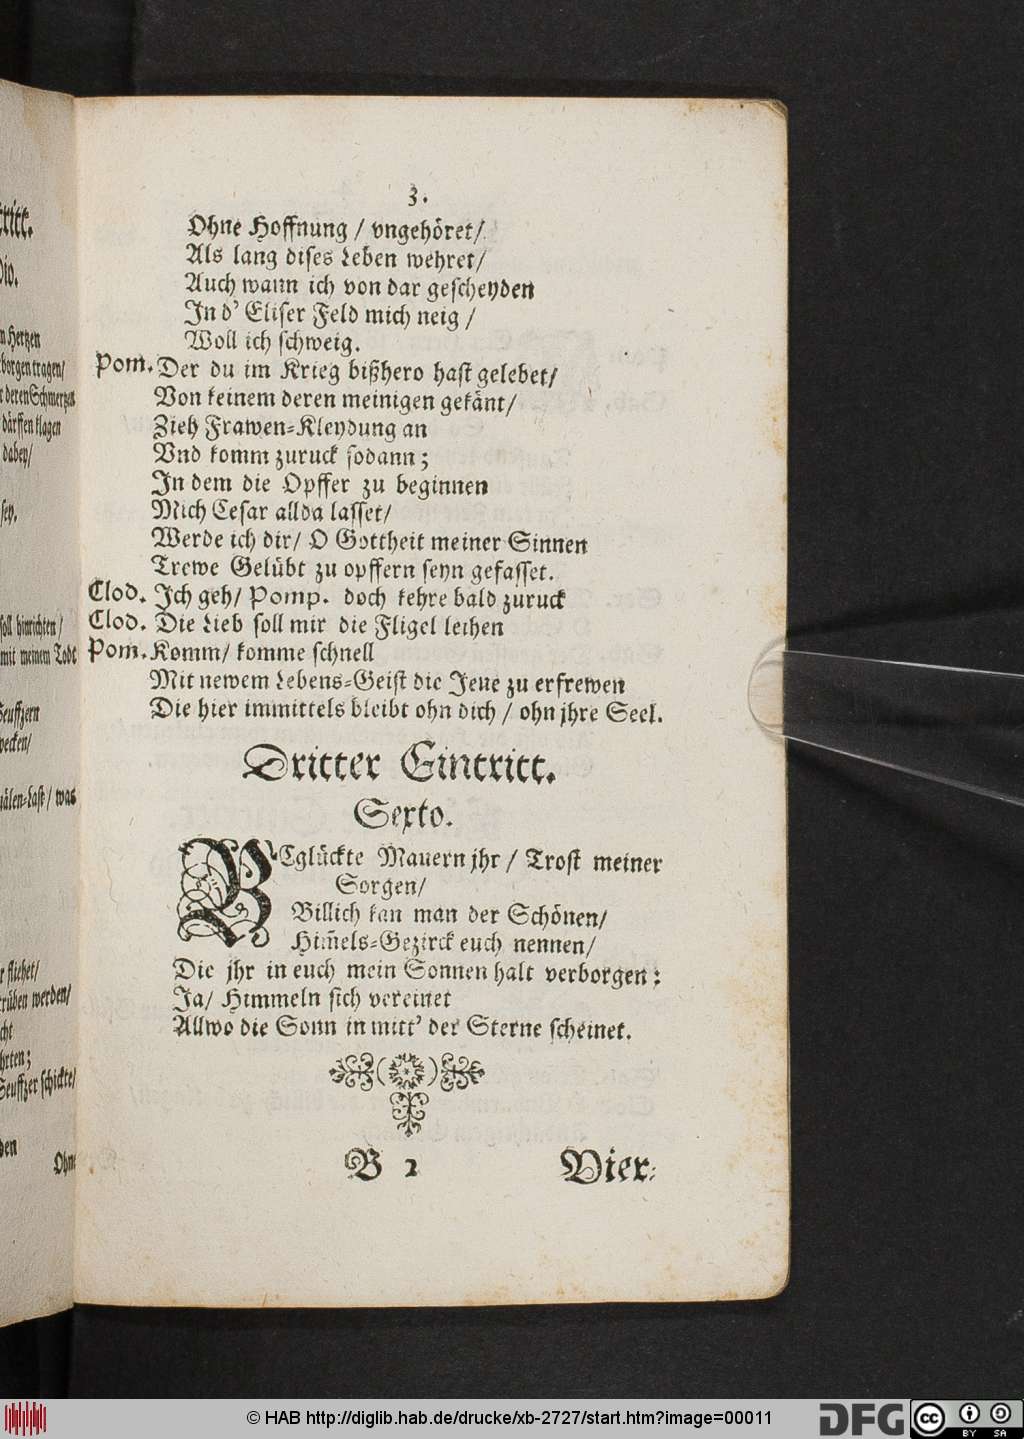 3.
Ohne Hoffnung / vngehöret/
Als lang dises Leben wehret/
Auch wann ich von dar gescheyden
In d' Eliser Feld mich neig /
Woll ich schweig.
Pom. Der du im Krieg bißhero hast gelebet/
Von keinem deren meinigen gekänt/
Zieh Frawen-Kleydung an
Vnd komm zuruck sodann;
In dem die Opffer zu beginnen
Mich Cesar allda lasset/
Werde ich dir/ O Gottheit meiner Sinnen
Trewe Gelübt zu opffern seyn gefasset.
Clod. Ich geh/ Pomp. doch kehre bald zuruck
Clod. Die Lieb soll mir die Fligel leihen
Pom. Komm/ komme schnell
Mit newem Lebens-Geist die Jene zu erfrewen
Die hier immittels bleibt ohn dich / ohn jhre Seel.
Dritter Eintritt.
Sexto.
BEglückte Mauern jhr / Trost meiner
Sorgen/
Billich kan man der Schönen/
Him̃els-Gezirck euch nennen/
Die jhr in euch mein Sonnen halt verborgen:
Ja/ Himmeln sich vereinet
Allwo die Sonn in mitt' der Sterne scheinet.
B 2 Vier-
tritt.
dio.
n Hertzen
borgen tragen/
deren Schmertzen
därffen klagen
dabey/
sey.
soll hinrichten/
mit meinem Todt
Seuffzern
wecken/
älen-Last / was
fliehet/
rüben werden/
cht
hrten;
Seuffzer schickte/
den
Ohne
© HAB http://diglib.hab.de/drucke/xb-2727/start.htm?image=00011
DFG
cc BY SA